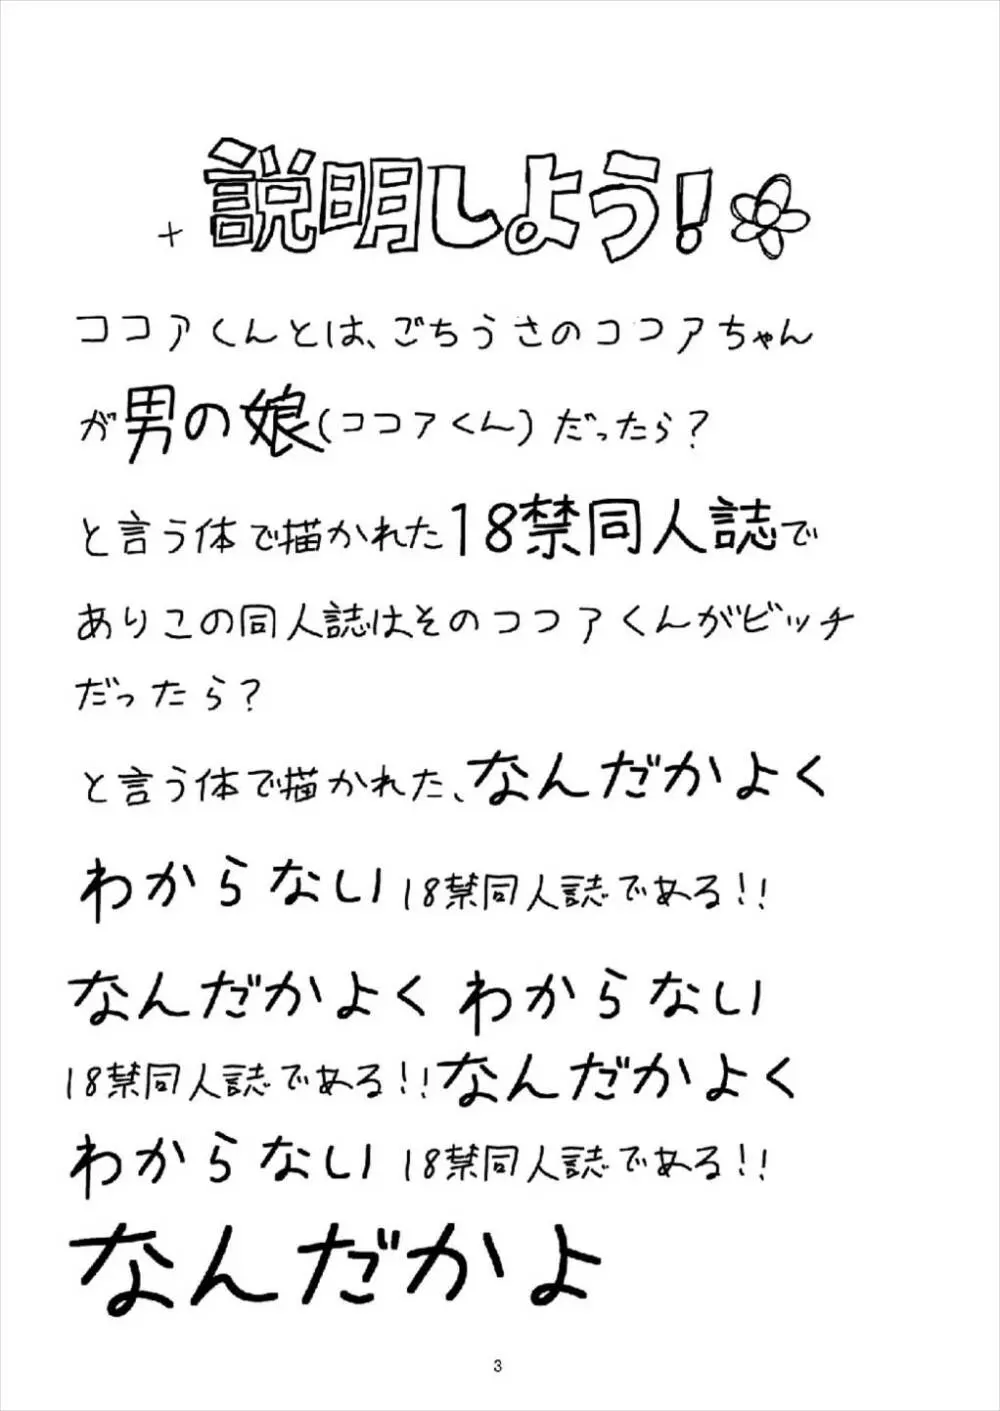 説明しよう!
ココアくんとは、ごちうさのココアちゃん
が男の娘(ココアくん)だったら?
と言う体で描かれた18禁同人誌で
ありこの同人誌はそのココアくんがビッチ
だったら?
と言う体で描かれた、なんだかよく
わからない18禁同人誌である!!
なんだかよくわからない
18禁同人誌である!!なんだかよく
わからない18禁同人誌である!!
なんだかよ
3